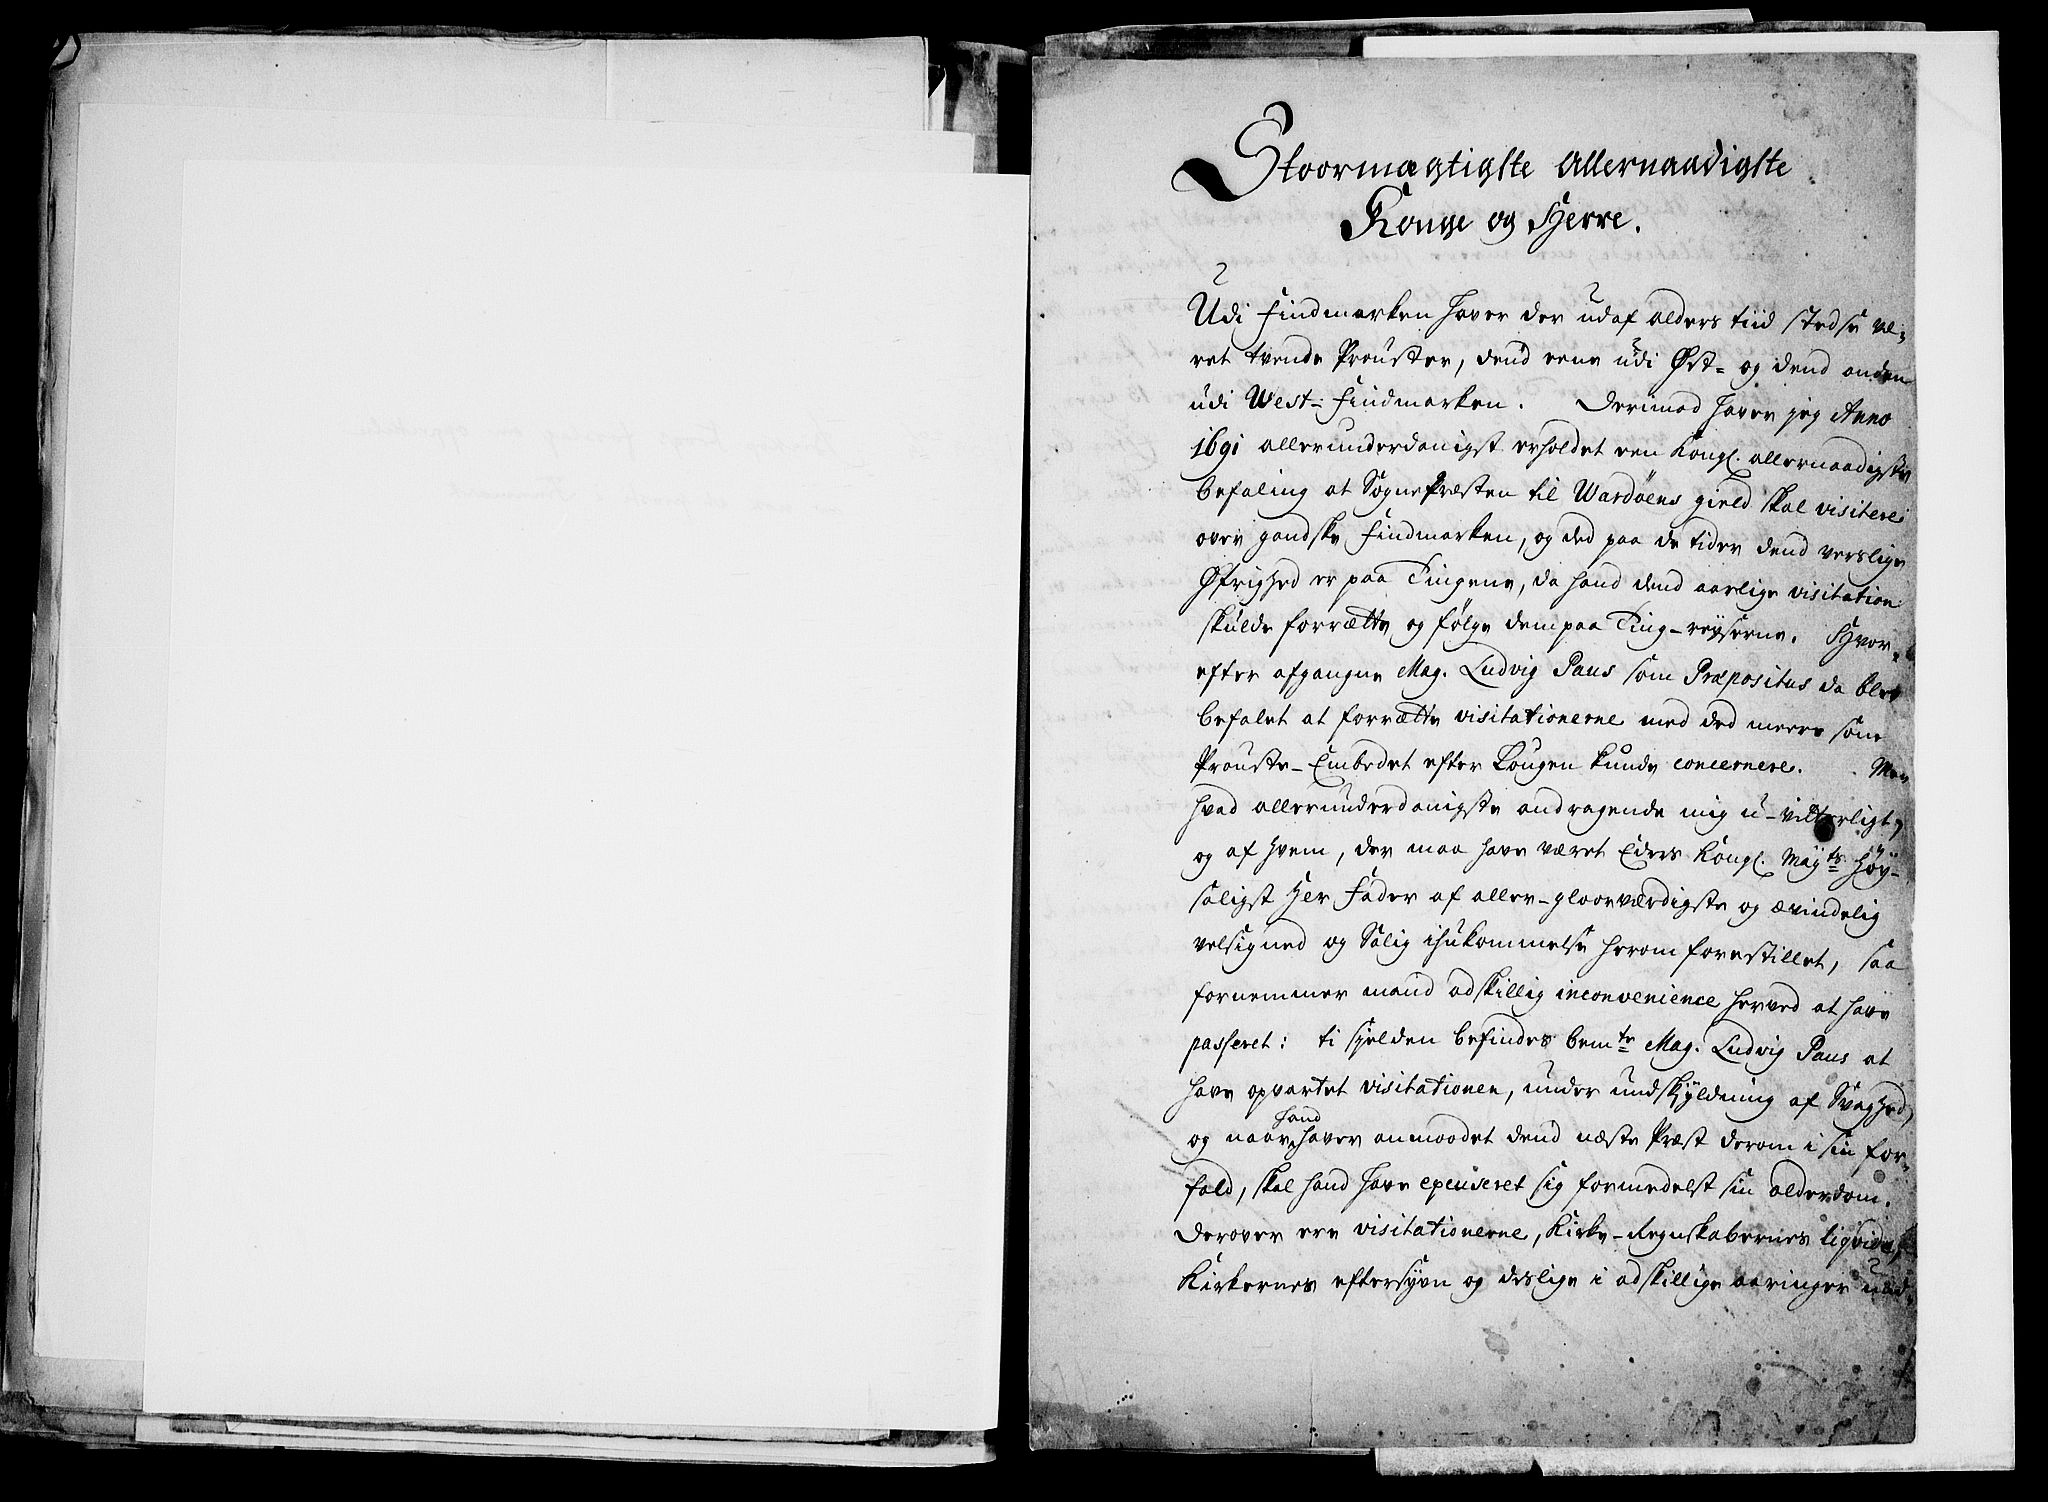 Stoormægtigste Allernaadigste
Konge og Herre.
Udi Findmarken haver der udaf alders tiid stedse væ-
ret tvende Prouster, dend eene udi Øst- og dend anden
udi West-Findmarken. Derimod haver jeg Anno
1691 allerunderdanigst erholdet een Kongl. allernaadigste
befaling at Sognepræsten til Wardöens gield skal visitere
over gandske Findmarken, og ded paa de tider dend verslige
Øfrighed er paa Tingene, da hand dend aarlige visitation
skulde forrætte og følge dem paa Ting-reyserne. Hvor-
efter afgangne Mag. Ludvig Paus som Præpositus da blev
befalet at forrætte visitationerne med ded meere som
Prouste-Embedet efter Lougen kunde concernere. Men
hvad allerunderdanigste andragende mig u-vitterligt,
og af hvem, der maa have været Eders Kongl. Mayts Høy-
saligst Her Fader af aller-gloorværdigste og ævindelig
velsigned og Salig ihukommelse herom forestillet, saa
fornemmer mand adskillig inconvenience herved at have
passeret: ti sjelden befindes bemte Mag. Ludvig Paus at
have opvartet visitationen, under undskyldning af Svaghed,
og naar hand haver anmoodet dend næste Præst derom i sin for-
fald, skal hand have excuseret sig formedelst sin alderdom.
Derover ere visitationerne, Kirke-Regnskabernes liqvida-
Kirkernes eftersyn og deslige i adskillige aaringer